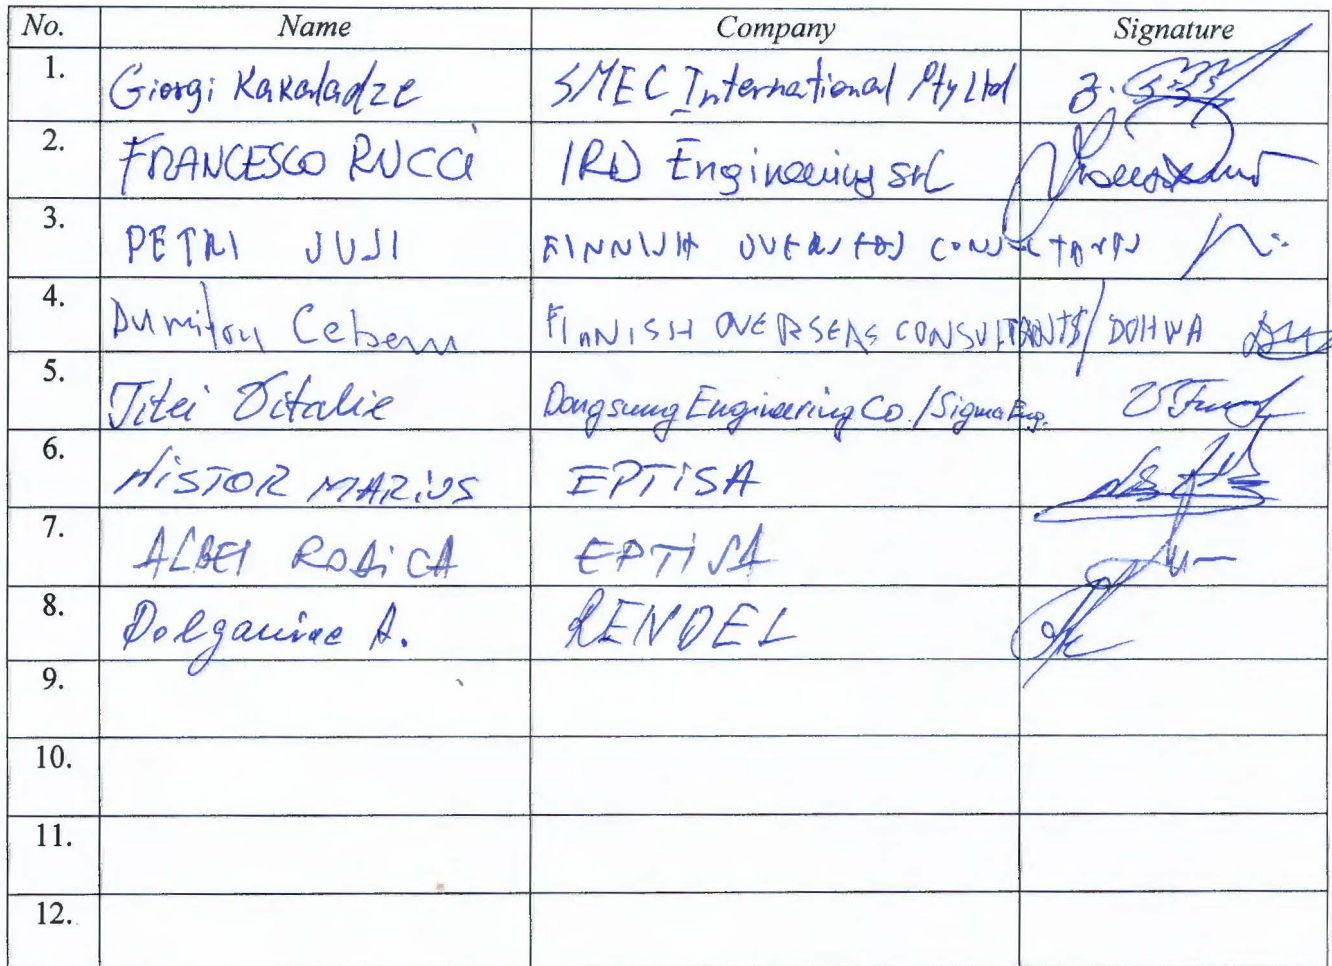 No. Name Company Signature
1. Giorgi Kakaladze SMEC International Pty Ltd
2. FRANCESCO RUCCI IRD Engineering srl
3. PETRI JUSI FINNISH OVERSEAS CONSULTANTS
4. Dumitru Ceban FINNISH OVERSEAS CONSULTANTS/ DOHWA
5. Titei Vitalie Dongsung Engineering Co./Sigma Eng.
6. NISTOR MARIUS EPTISA
7. ALBEI RODICA EPTISA
8. A. RENDEL
9.
10.
11.
12.